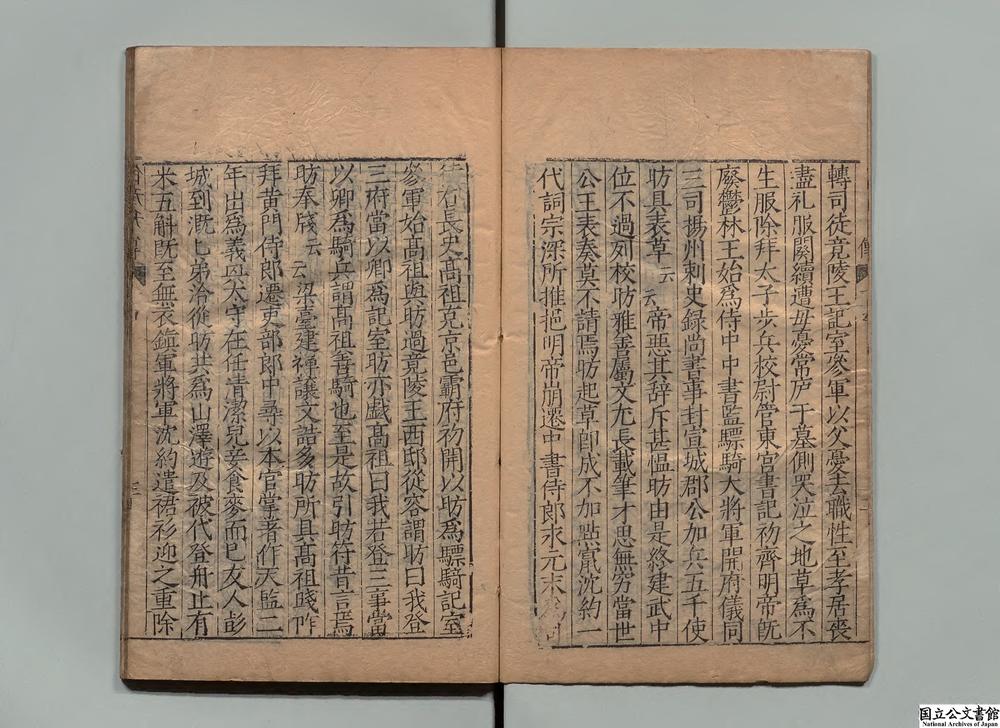 轉司徒竟陵王記室參軍以父憂去職性至孝居喪
盡礼服闋續遭母憂常庐于墓側哭泣之地草為不
生服除拜太子步兵校尉管東宮書記初齊明帝既
廢鬱林王始爲侍中中書監驃騎大將軍開府儀同
三司揚州刺史録尚書事封宣城郡公加兵五千使
昉具表草云云帝惡其辞斥甚愠昉由是終建武中
位不過列校昉雅善屬文尤長載筆才思無穷當世
公王表奏莫不請焉昉起草即成不加點竄沈約一
代詞宗深所推挹明帝崩遷中書侍郎永元末爲司
徒右長史高祖克京邑霸府初開以昉爲驃騎記室
參軍始高祖與昉過竟陵王西邸從容謂昉曰我登
三府當以卿為記室昉亦戲高祖曰我若登三事當
以卿爲騎兵謂高祖善騎也至是故引昉符昔言焉
昉奉牋云云梁臺建禅讓文誥多昉所具高祖踐阼
拜黄門侍郎遷吏部郎中尋以本官掌著作天監二
年出爲義興太守在任清潔兒妾食麥而已友人彭
城到溉匕弟洽從昉共爲山澤遊及被代登舟止有
米五斛既至無衣鎮軍將軍沈約遣裙衫迎之重除
傳
国立公文書館
National Archives of Japan